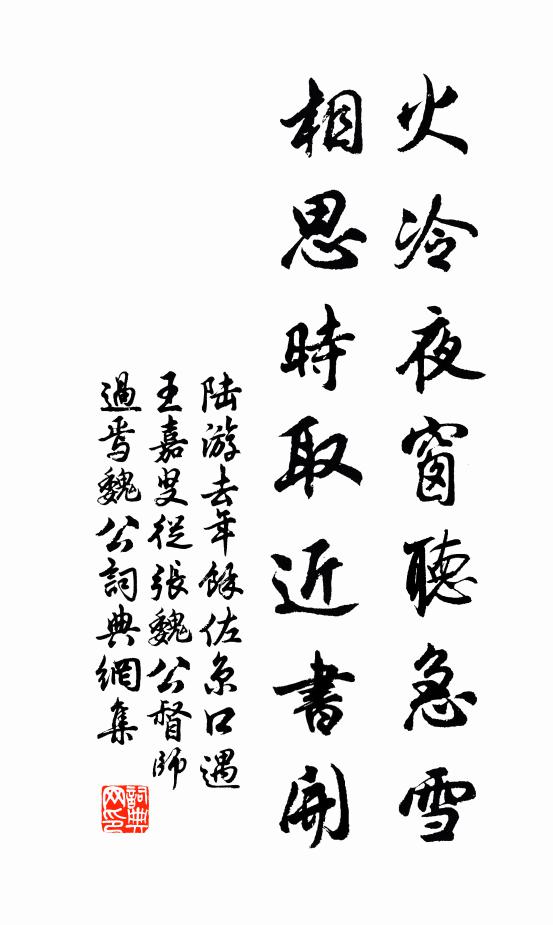 火冷夜窗聽急雪
相思時取近書開
陆游去年餘佐京口遇
王嘉叟從張魏公督師
過焉魏公詞典網集
詞典
网印